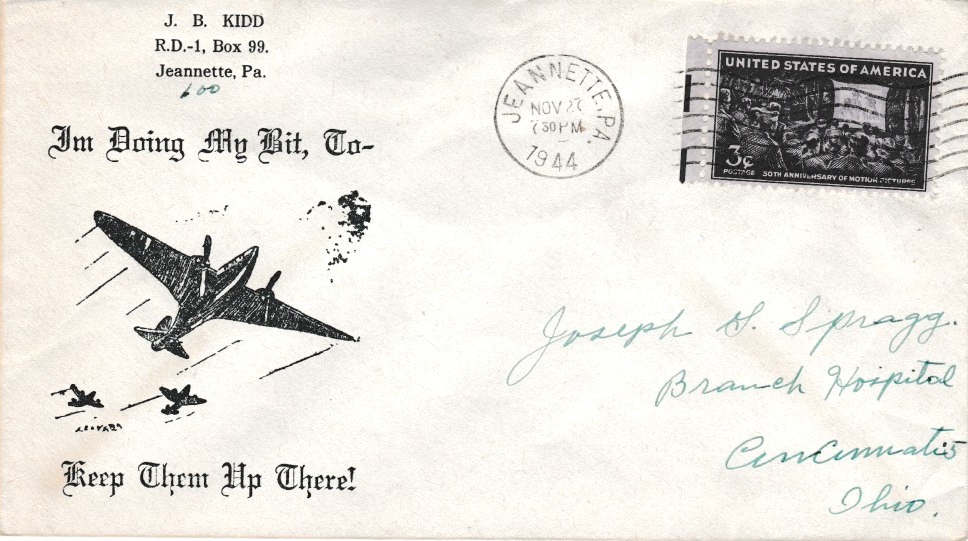 J. B. KIDD
R.D.-1, Box 99.
Jeannette, Pa.
600
Im Doing My Bit, To-
Keep Them Up There!
JEANNETTE, PA.
NOV 27
7 30 PM
1944
UNITED STATES OF AMERICA
3¢
POSTAGE 50TH ANNIVERSARY OF MOTION PICTURES
Joseph S. Spragg.
Branch Hospital
Cincinnati 5
Ohio.